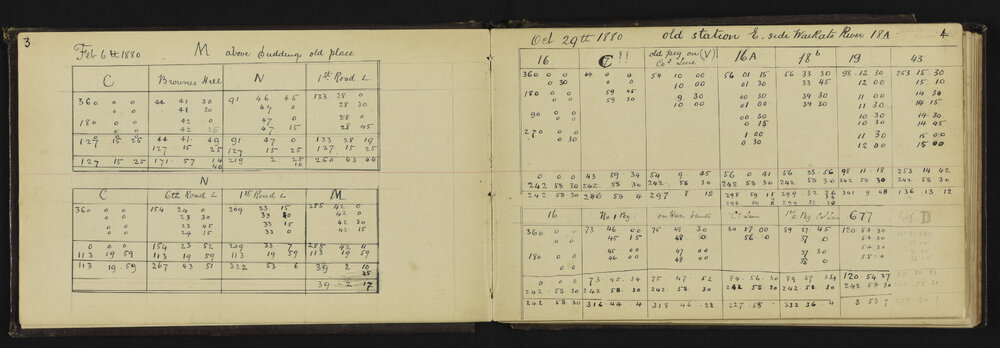 3
Feb 6th 1880 M above Suddings old place
C Brownes Hill N 1st Road L
360 0 0 44 41 30 91 46 45 133 28 0
0 0 41 30 47 0 28 30
180 0 0 42 0 47 0 28 0
0 0 42 30 47 15 28 45
127 15 25 44 41 49 91 47 0 133 28 19
127 15 25 127 15 25 127 15 25
127 15 25 171 57 14 219 2 25 260 43 44
N
C 6th Road L 1st Road L M
360 0 0 154 24 0 209 33 15 285 42 0
0 0 23 30 33 42 0
23 45 33 15 42 30
24 15 33 0 42 15
0 0 0 154 23 52 209 33 7 285 42 11
113 19 59 113 19 59 113 19 59 113 19 59
113 19 59 267 43 51 322 53 6 39 2 10
39 2 17
4
Oct 29th 1880 old station E. side Waikato River 18A
16 C old peg on (V) Cos Line 16A 18b 19 43
360 0 0 44 0 0 54 10 00 56 01 15 56 33 30 98 12 30 253 15 30
0 0 0 0 10 00 01 30 33 45 12 00 15 10
180 0 0 59 45 9 30 00 30 34 30 11 00 14 30
0 0 59 30 10 00 01 00 34 30 11 00 14 15
90 0 0 00 30 10 30 14 30
0 0 0 15 10 30 14 45
270 0 0 1 00 11 30 15 00
0 30 0 30 12 00 15 00
0 0 0 43 59 34 54 9 45 56 0 41 56 33 56 98 11 18 253 14 42
242 58 30 242 58 30 242 58 30 242 58 30 242 58 30 242 58 30 242 58 30
242 58 30 286 58 4 297 8 15 298 59 11 299 32 26 341 9 48 136 13 12
16 No 1 Peg on River bank Cos Line 1st Peg Cos Line 677 D
360 0 0 73 46 00 75 47 30 84 57 00 89 37 45 120 54 30
0 0 45 15 48 0 56 0 37 0 53 30
180 0 0 45 00 47 00 37 30 54 30
0 0 46 00 48 0 38 0 55 0
0 0 0 73 45 34 75 47 52 84 56 30 89 37 34 120 54 37
242 58 30 242 58 30 242 58 30 242 58 30 242 58 30 242 58 30
242 58 30 316 44 4 318 46 22 327 55 332 36 4 3 53 7